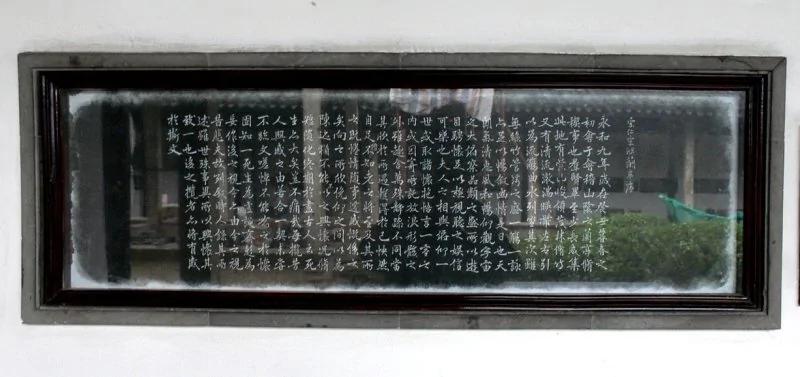 蘭亭序
永和九年歲在癸丑暮春之
初會于會稽山陰之蘭亭脩
禊事也羣賢畢至少長咸集
此地有崇山峻領茂林脩竹
又有清流激湍暎帶左右引
以為流觴曲水列坐其次雖
無絲竹管弦之盛一觴一詠
亦足以暢敘幽情是日也天
朗氣清惠風和暢仰觀宇宙
之大俯察品類之盛所以遊
目騁懷足以極視聽之娛信
可樂也夫人之相與俯仰一
世或取諸懷抱悟言一室之
內或因寄所託放浪形骸之
外雖趣舍萬殊靜躁不同當
其欣於所遇蹔得於己怏然
自足不知老之將至及其所
之既惓情隨事遷感慨係之
矣向之所欣俛仰之間以為
陳迹猶不能不以之興懷況脩
短隨化終期於盡古人云死
生亦大矣豈不痛哉每攬昔
人興感之由若合一契未嘗
不臨文嗟悼不能喻之於懷
固知一死生為虛誕齊彭殤為
妄作後之視今亦由今之視
昔悲夫故列敘時人錄其所
述雖世殊事異所以興懷其
致一也後之攬者亦將有感
於斯文